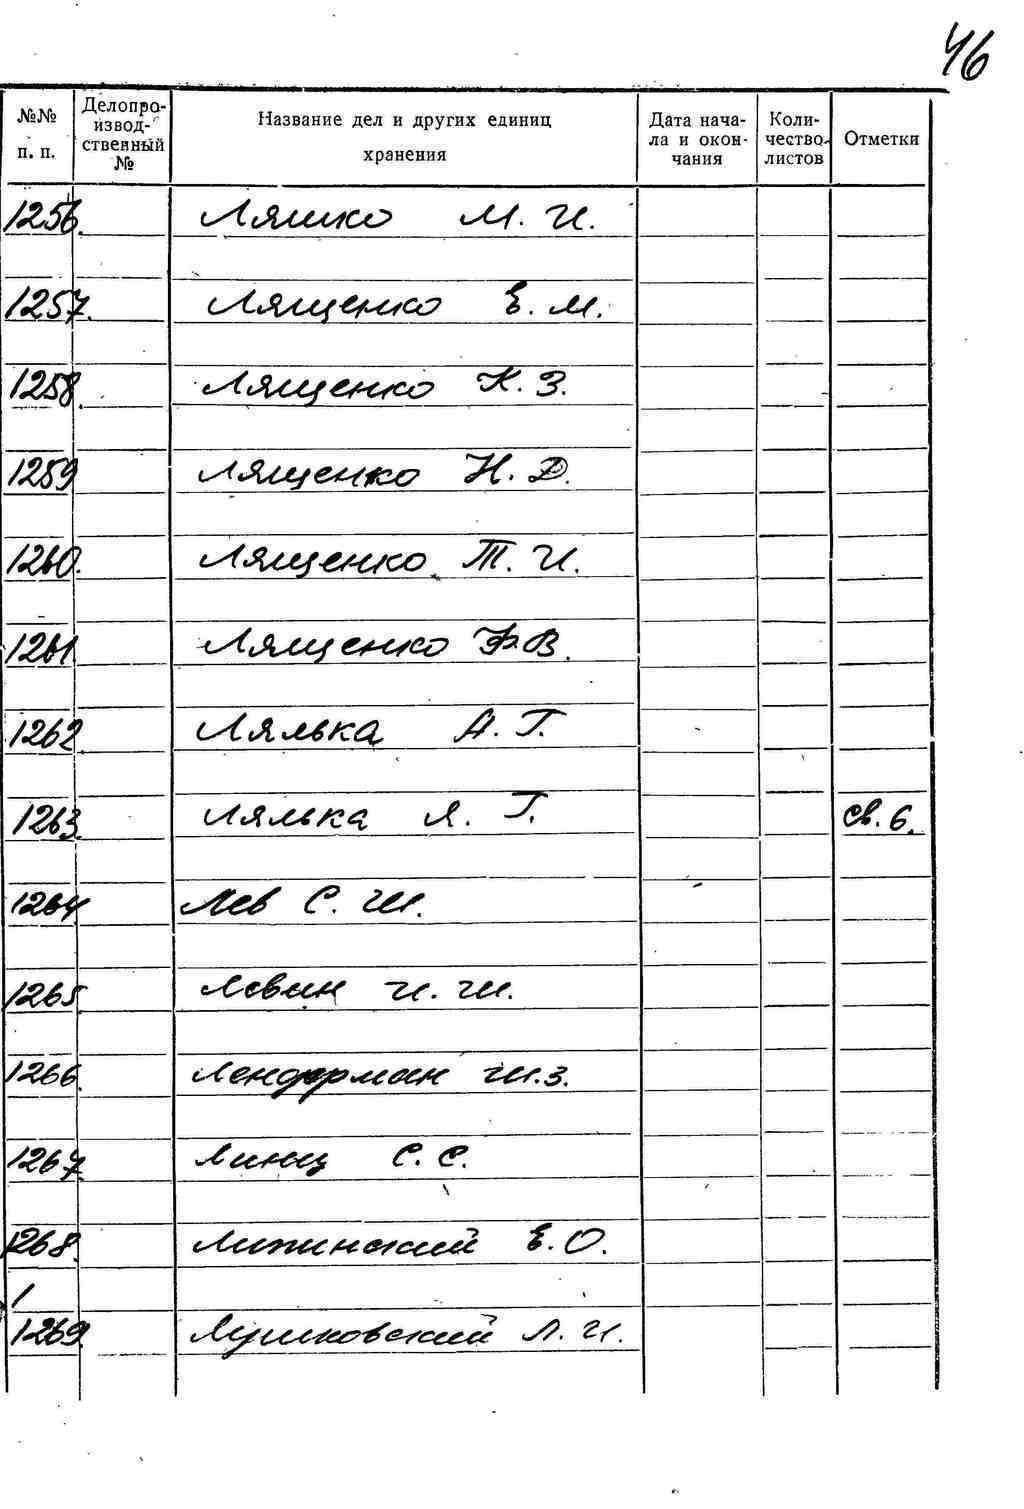 46
№№ п. п. Делопроизвод-ственный № Название дел и других единиц хранения Дата нача-ла и окон-чания Коли-чество листов Отметки
1256. Ляшко М. И.
1257. Лященко Е. М.
1258. Лященко К. З.
1259 Лященко Н. Д.
1260. Лященко Т. И.
1261 Лященко Ф. В.
1262 Лялька А. Г.
1263. Лялька Я. Г. св. 6.
1264. Лев С. Ш.
1265 Левин И. Ш.
1266. Лендерман Ш. З.
1267. Линц С. С.
1268. Липинский Е. О.
1269. Лушковский Л. И.